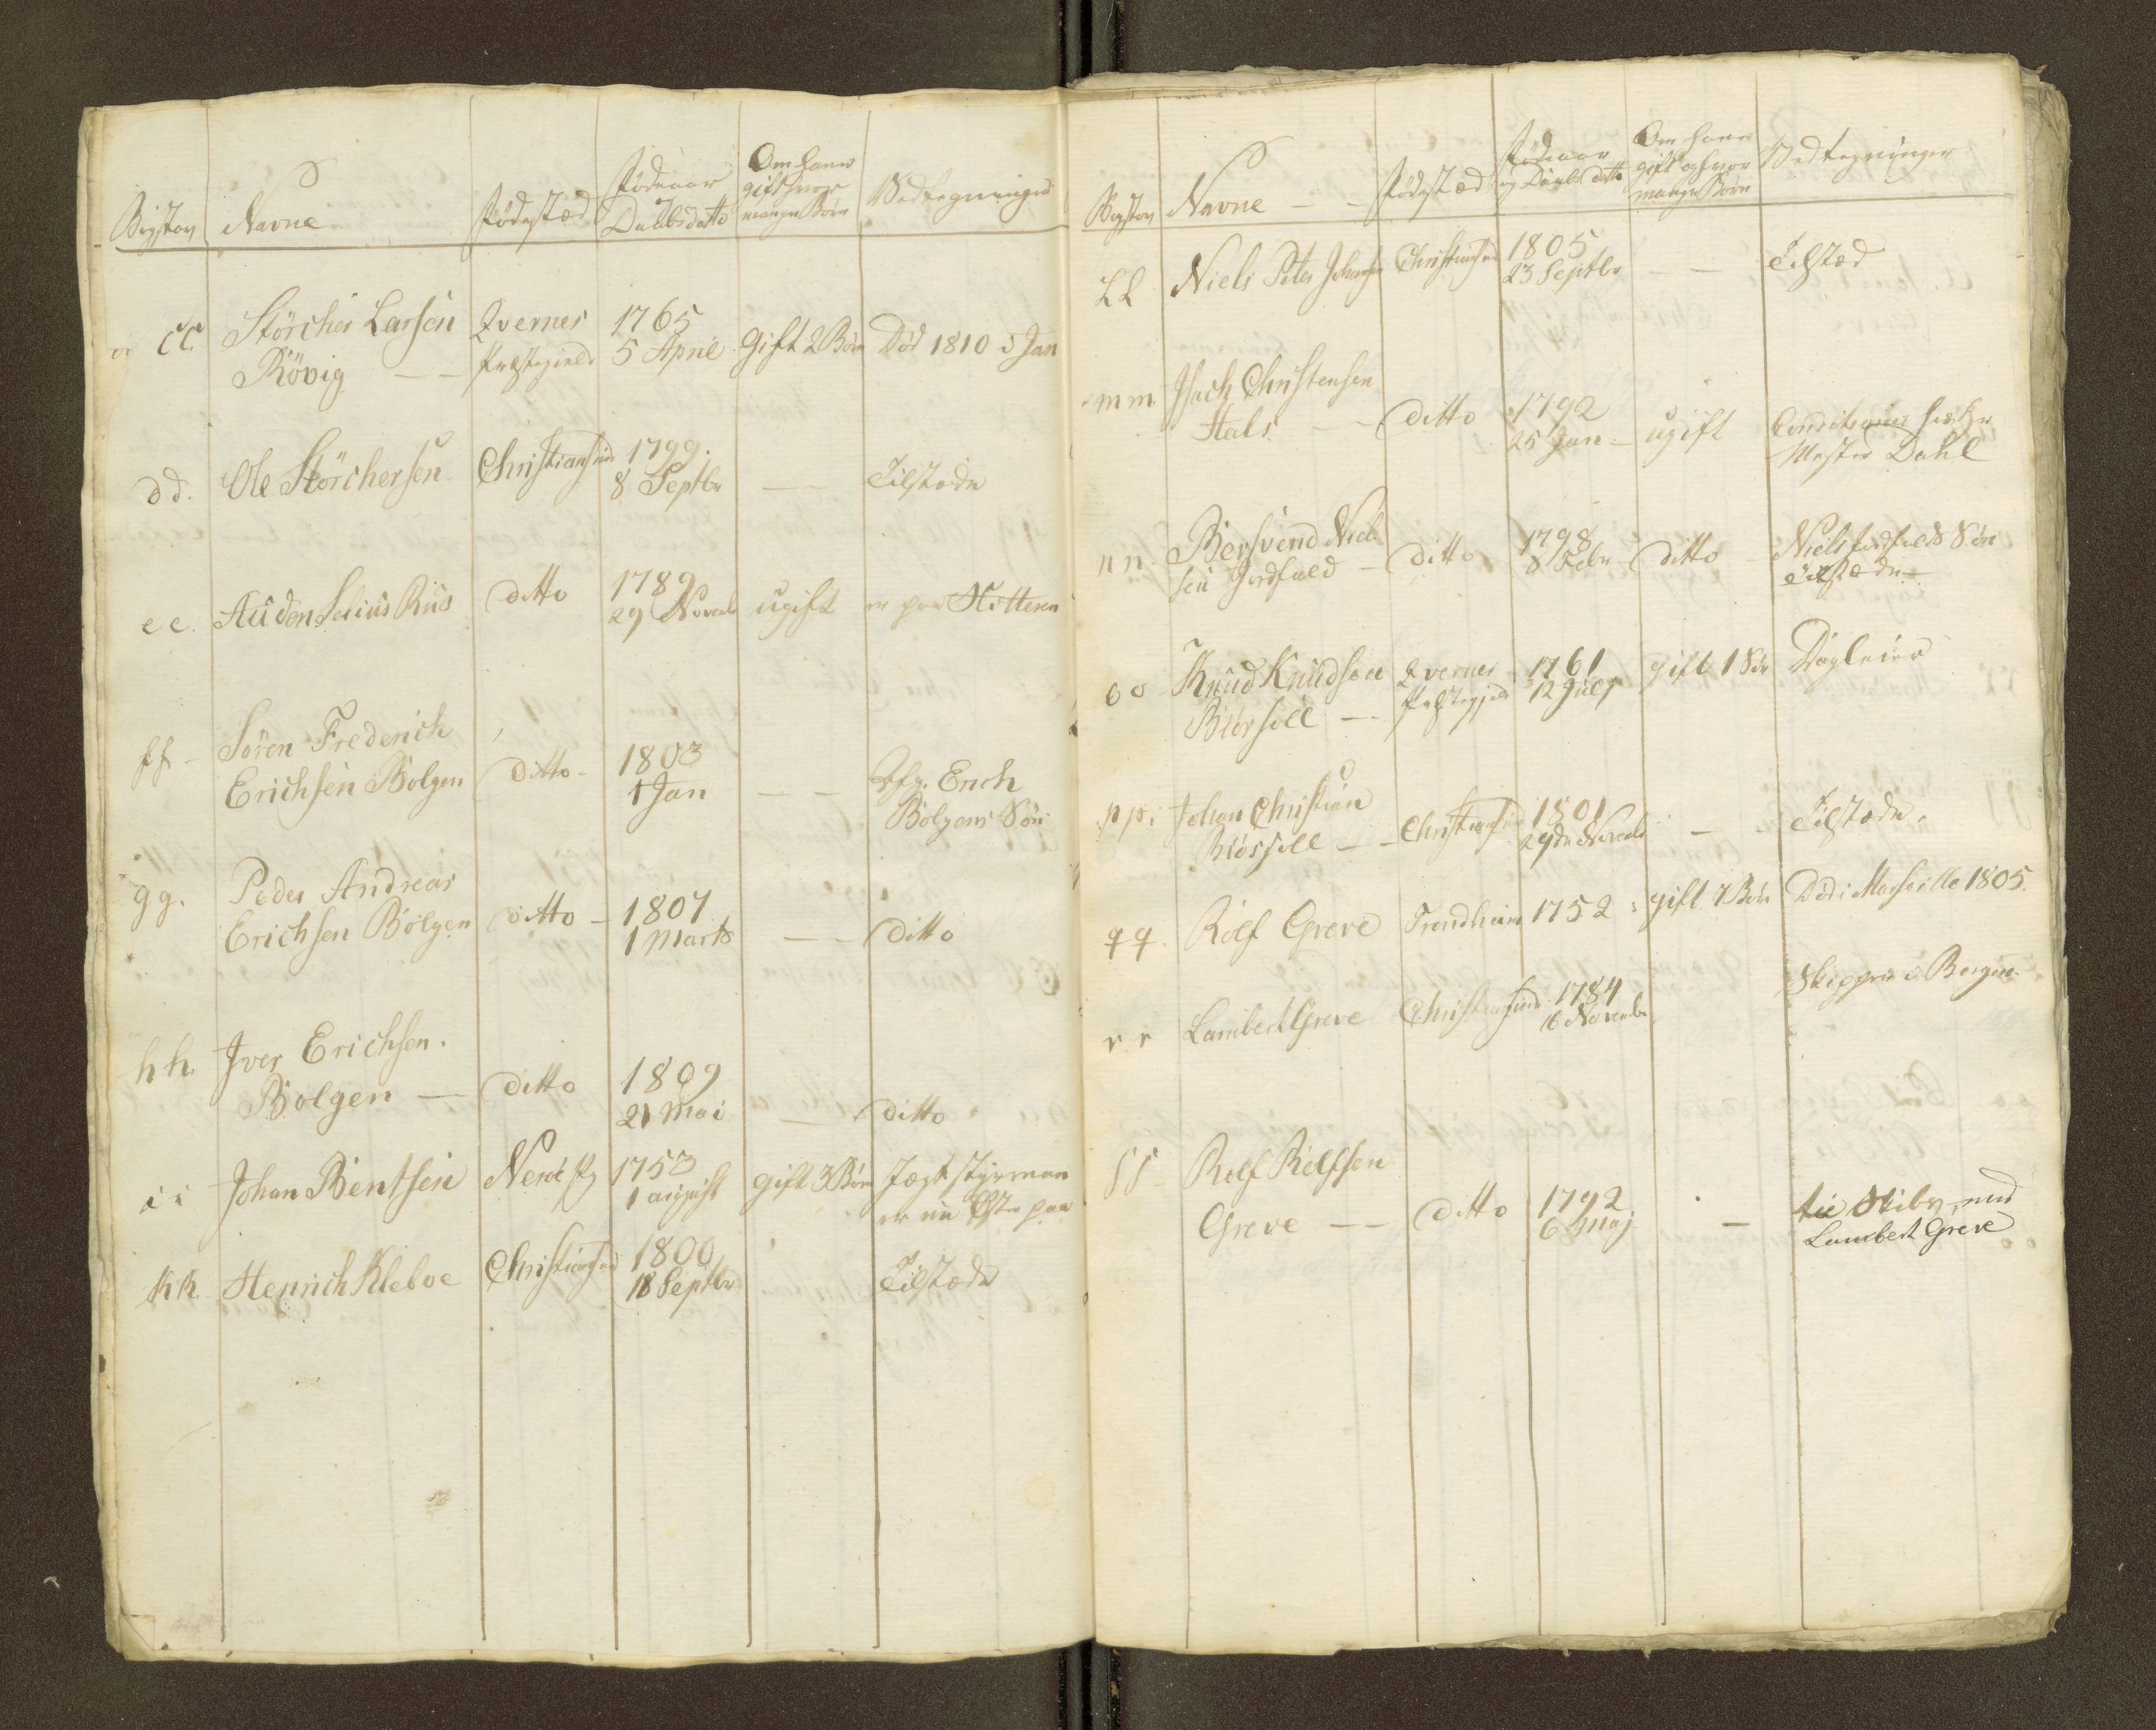 Bogstav Navne Fødestæd Fødeaar Daabsdatto Om han er gift hvor mange Børn Vedtegninger
cc. Störcher Larsen Qvernes 1765
Rövig — Præstegield 5 April Gift 2 Børn Død 1810 5 Jan
dd. Ole Störchersen Christiansund 1799.
8 Septbr — Tilstæde
ee. Auden Selius Rus ditto 1789
29 Novemb ugift er paa Hitteren
ff. Sören Frederich
Erichsen Bölgen ditto 1803
1 Jan — Erich
Bölgens Søn
gg. Peder Andreas
Erichsen Bölgen ditto — 1807
1 Marts — ditto
hh. Iver Erichsen.
Bölgen — ditto 1809
21 Mai — ditto
ii Johan Bentsen 1753
1 august gift 3 Børn Jægt styrman
er nu paa
kk. Henrich Kleboe Christiansund 1800
18 Septbr Tilstæde
Bogstav Navne — Fødestæd Fødeaar og Daabs datto Om han er gift og hvor mange Børn Vedtegninger
LL Niels Peter Johansen Christiansund 1805
23 Septbr — Tilstæd
mm. Isach Christensen
Hals — ditto 1792
25 Jan — ugift Conditioner
Mester Dahl
nn. Bersvend Niel-
sen Jordfald — ditto 1798
8 Febr — ditto Niels Jordfalds Søn
Tilstæde
oo Knud Knudsen Qvernes 1761 gift 1 Søn Dagleier
Biörsell — Præstegjeld 12 July
pp. Johan Christian
Biössell — Christiansund 1801
29de Novemb — Tilstæde.
qq. Rolf Greve Trondheim 1752 gift 7 Børn Död i Marseille 1805.
rr Lambert Greve Christiansund 1784
16 Novembr Skipper i Bergen
ss Rolf Rolfsen
Greve — ditto 1792
6 Maj — til Skibs med
Lambert Greve